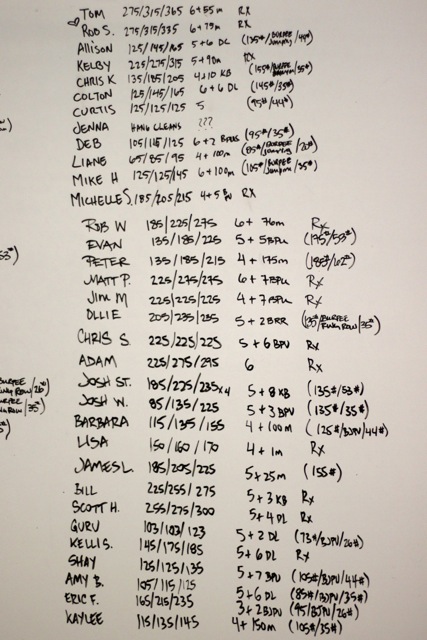 TOM 275/315/365 6+55m RX
ROD S. 275/315/335 6+75m RX
Allison 125/145/165 5+6 DL (135#/BURPEE Jumping/44#)
KELBY 225/275/315 5+90m RX
CHRIS K 135/185/205 4+10 KB (155#/BURPEE /35#)
COLTON 125/145/165 6+6 DL (145#/35#)
CURTIS 125/125/125 5 (95#/44#)
JENNA HANG CLEANS ???
DEB 105/115/125 6+2 (95#/35#)
LIANE 65/85/95 4+100m (85#/BURPEE Jumping/26#)
MIKE H 125/125/145 6+100m (105#/BURPEE Jumping/35#)
MICHELLE S. 185/205/215 4+5 RX
ROB W 185/225/275 6+76m Rx
EVAN 135/185/225 5+5BPU (195#/53#)
PETER 135/185/215 4+175m (185#/62#)
MATT P. 225/275/275 6+7BPU Rx
JIM M 225/225/225 4+7BPU Rx
OLLIE 205/235/255 5+2BRR (135#/BURPEE RING ROW/35#)
CHRIS S. 225/225/225 5+6BPU Rx
ADAM 225/275/295 6 Rx
JOSH ST. 185/275/235x4 5+8KB (135#/53#)
JOSH W. 85/135/225 5+3BPU (135#/35#)
BARBARA 115/135/155 4+100m (125#/BJPU/44#)
LISA 150/160/170 4+1m Rx
JAMES L. 185/205/225 5+25m (155#)
BILL 225/255/275 5+3KB Rx
SCOTT H. 255/275/300 5+4DL Rx
GURU 103/103/123 5+2DL (73#/BJPU/26#)
KELLI S. 145/175/185 5+6 DL Rx
SHAY 125/125/135 5+7BPU (105#/BJPU/44#)
AMY B. 105/115/125 5+6 DL (85#/BJPU/35#)
ERIC F. 165/215/235 3+2BJPU (95/BJPU/26#)
KAYLEE 115/135/145 4+150m (105#/35#)